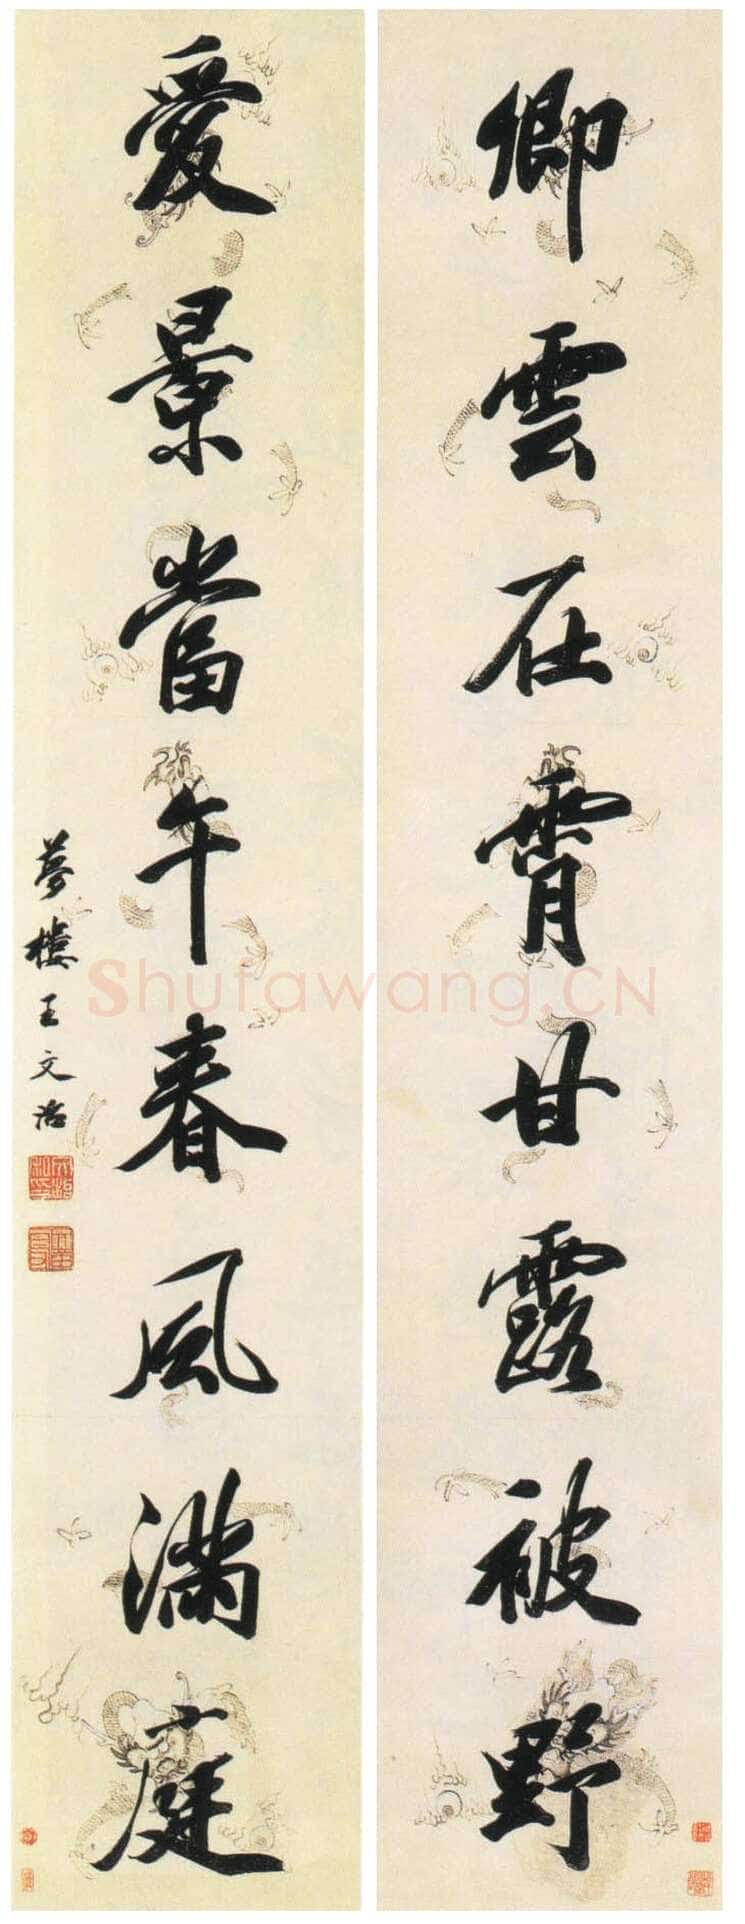 卿雲在霄甘露被野
愛景當午春風滿庭
夢樓王文治
Shufawang.CN